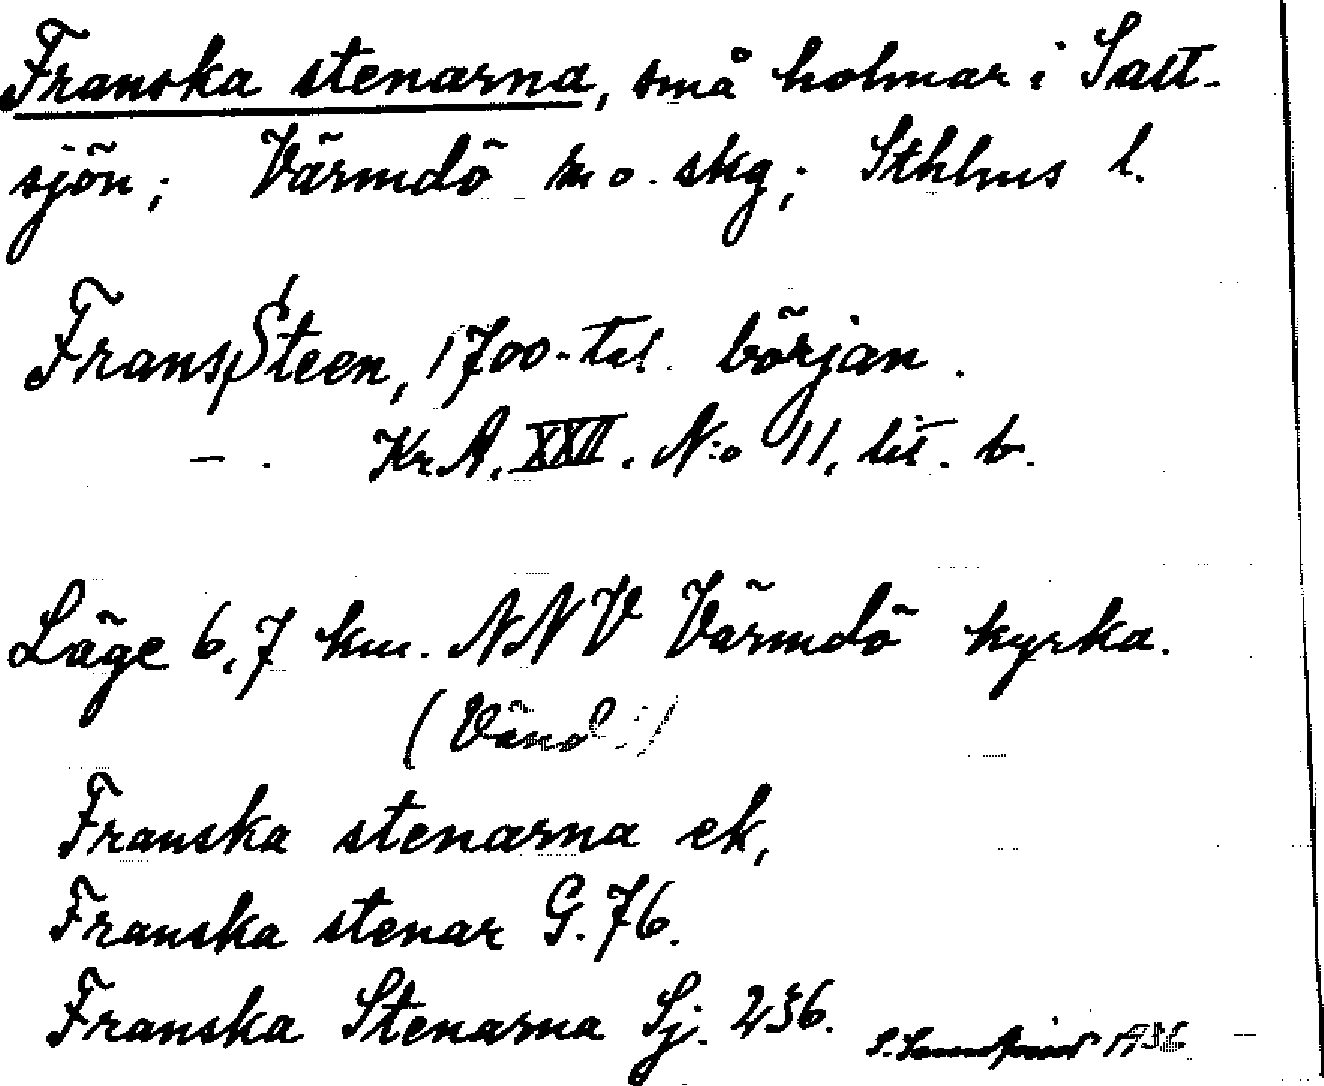 Franska stenarna, små holmar i Salt-
sjön; Värmdö m o. skg; Sthlms l.
Frans Steen, 1700-tal. början.
– . Kr.A. XXII. N:o 11, lit. b.
Läge 6,7 km. NNV Värmdö kyrka.
(Vänd!)
Franska stenarna ek,
Franska stenar G. 76.
Franska Stenarna Sj. 236.
1936